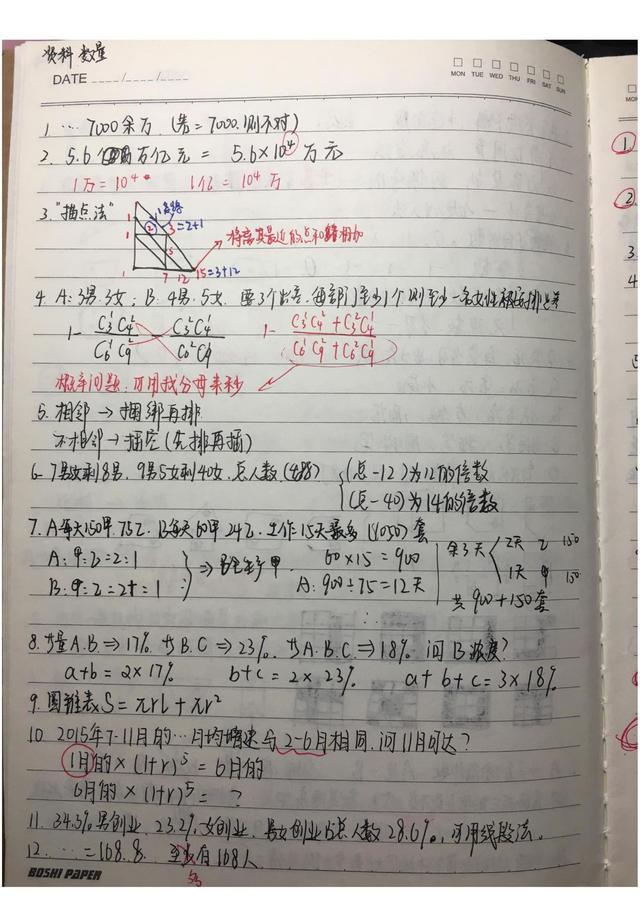 资料 数量
DATE ____/____/____
MON TUE WED THU FRI SAT SUN
1. … 7000余万 (若=7000.1则不对)
2. 5.6 万亿元 = 5.6×10⁴ 万元
1万=10⁴ 1亿=10⁴万
3. "描点法" 1 1 1 2 3=2+1 5 7 12 15=3+12
将离其最近的点和 相加
4. A:3男.3女; B:4男.5女. 要3个出差.每部门至少1个 则至少一名女性被安排出差
1- C₃¹C₄²/C₆¹C₉² - C₃²C₄¹/C₆²C₉¹ 1- (C₃¹C₄²+C₃²C₄¹)/(C₆¹C₉²+C₆²C₉¹)
概率问题.可用找分母来秒
5. 相邻→捆绑再排
不相邻→插空(先排再插)
6. 7男5女剩8男. 9男5女剩40女. 总人数 {(总-12)为12的倍数
(总-40)为14的倍数
7. A每天150甲.75乙. B每天60甲24乙. 工作15天最多(1050)套
A:甲:乙=2:1
B:甲:乙=2+:1 ⇒ 生产甲. 60×15=900
A:900÷75=12天
余3天 2天 乙 150
1天 甲 150
共900+150套
8. 等量A.B⇒17%. 等B.C⇒23%. 等A.B.C⇒18% 问B浓度?
a+b=2×17% b+c=2×23% a+b+c=3×18%
9. 圆锥表S=πrl+πr²
10. 2015年7-11月的…月均增速与2-6月相同.问11月可达?
1月的×(1+r)⁵=6月的
6月的×(1+r)⁵= ?
11. 34.3%男创业. 23.2%女创业. 男女创业占总人数28.6%, 可用线段法.
12. …=168.8. 有168人
BOSHI PAPER